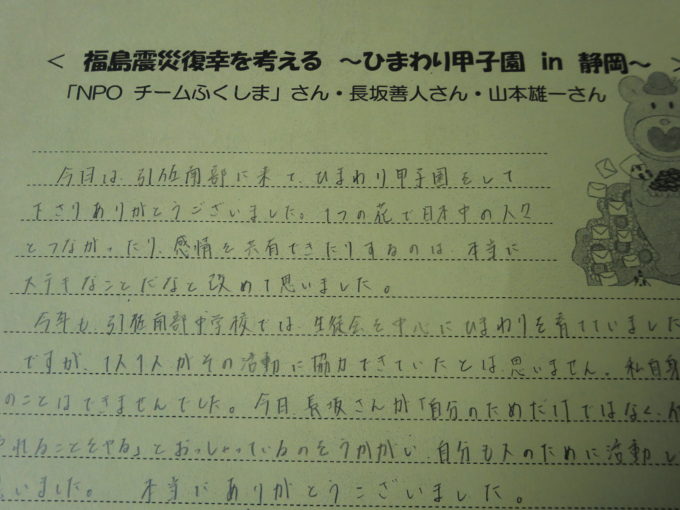 < 福島震災復幸を考える ～ひまわり甲子園 in 静岡～ >
「NPO チームふくしま」さん・長坂善人さん・山本雄一さん
今日は、引佐南部に来て、ひまわり甲子園をして
下さりありがとうございました。1つの花で日本中の人々
とつながったり、感情を共有できたりするのは、本当に
ステキなことだなと改めて思いました。
今年も、引佐南部中学校では、生徒会を中心にひまわりを育てていました
ですが、1人1人がその活動に協力できていたとは思いません。私自身
のことはできませんでした。今日、長坂さんが「自分のためだけではなく、
れることをやる」とおっしゃっているのをうかがい、自分も人のために活動し
いました。 本当にありがとうございました。